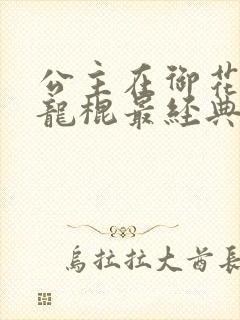 公主在御花
龍棍最經典
烏拉拉大酋長